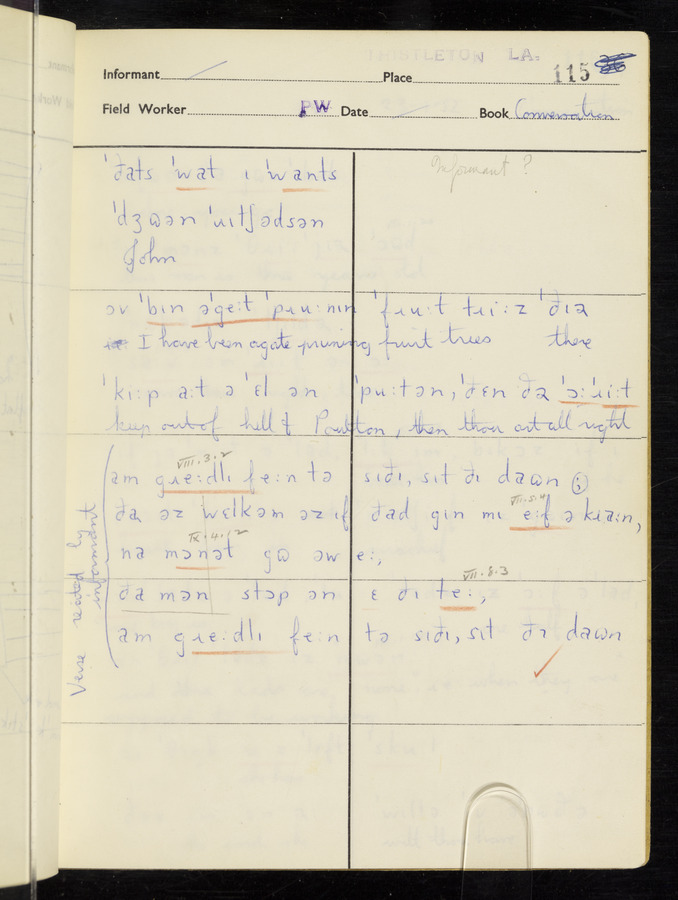 THISTLETON LA.
Informant Place 115
Field Worker PW Date Book Conversation
Informant ?
ˈðats ˈwat ɪ ˈwants
ˈdʒɒən ˈɹɪtʃədsən
John
əv ˈbɪn əˈgeːt ˈpɹuːnɪn ˈfɹuːt tɹiːz ˈðɪə
I have been agate pruning fruit trees there
ˈkɪːp aːt ə ˈɛl ən ˈpuːtən, ˈðɛn ða ˈɔːˈɹiːt
keep out of hell & Poulton, then thou art all right
VIII.3.2
am gɹeːdlɪ feːn tə sɪðɪ, sɪt ðɪ dawn ;
VII.5.4
ða əz wɛlkəm əz ɪf ðad gɪn mɪ eːf ə kɹaːn,
IX.4.12
na mənət gɒ əweː,
VII.8.3
ða mən stɒp ən ɛ ðɪ teː,
am gɹeːdlɪ feːn tə sɪðɪ, sɪt ðɪ dawn
Verse recited by
informant